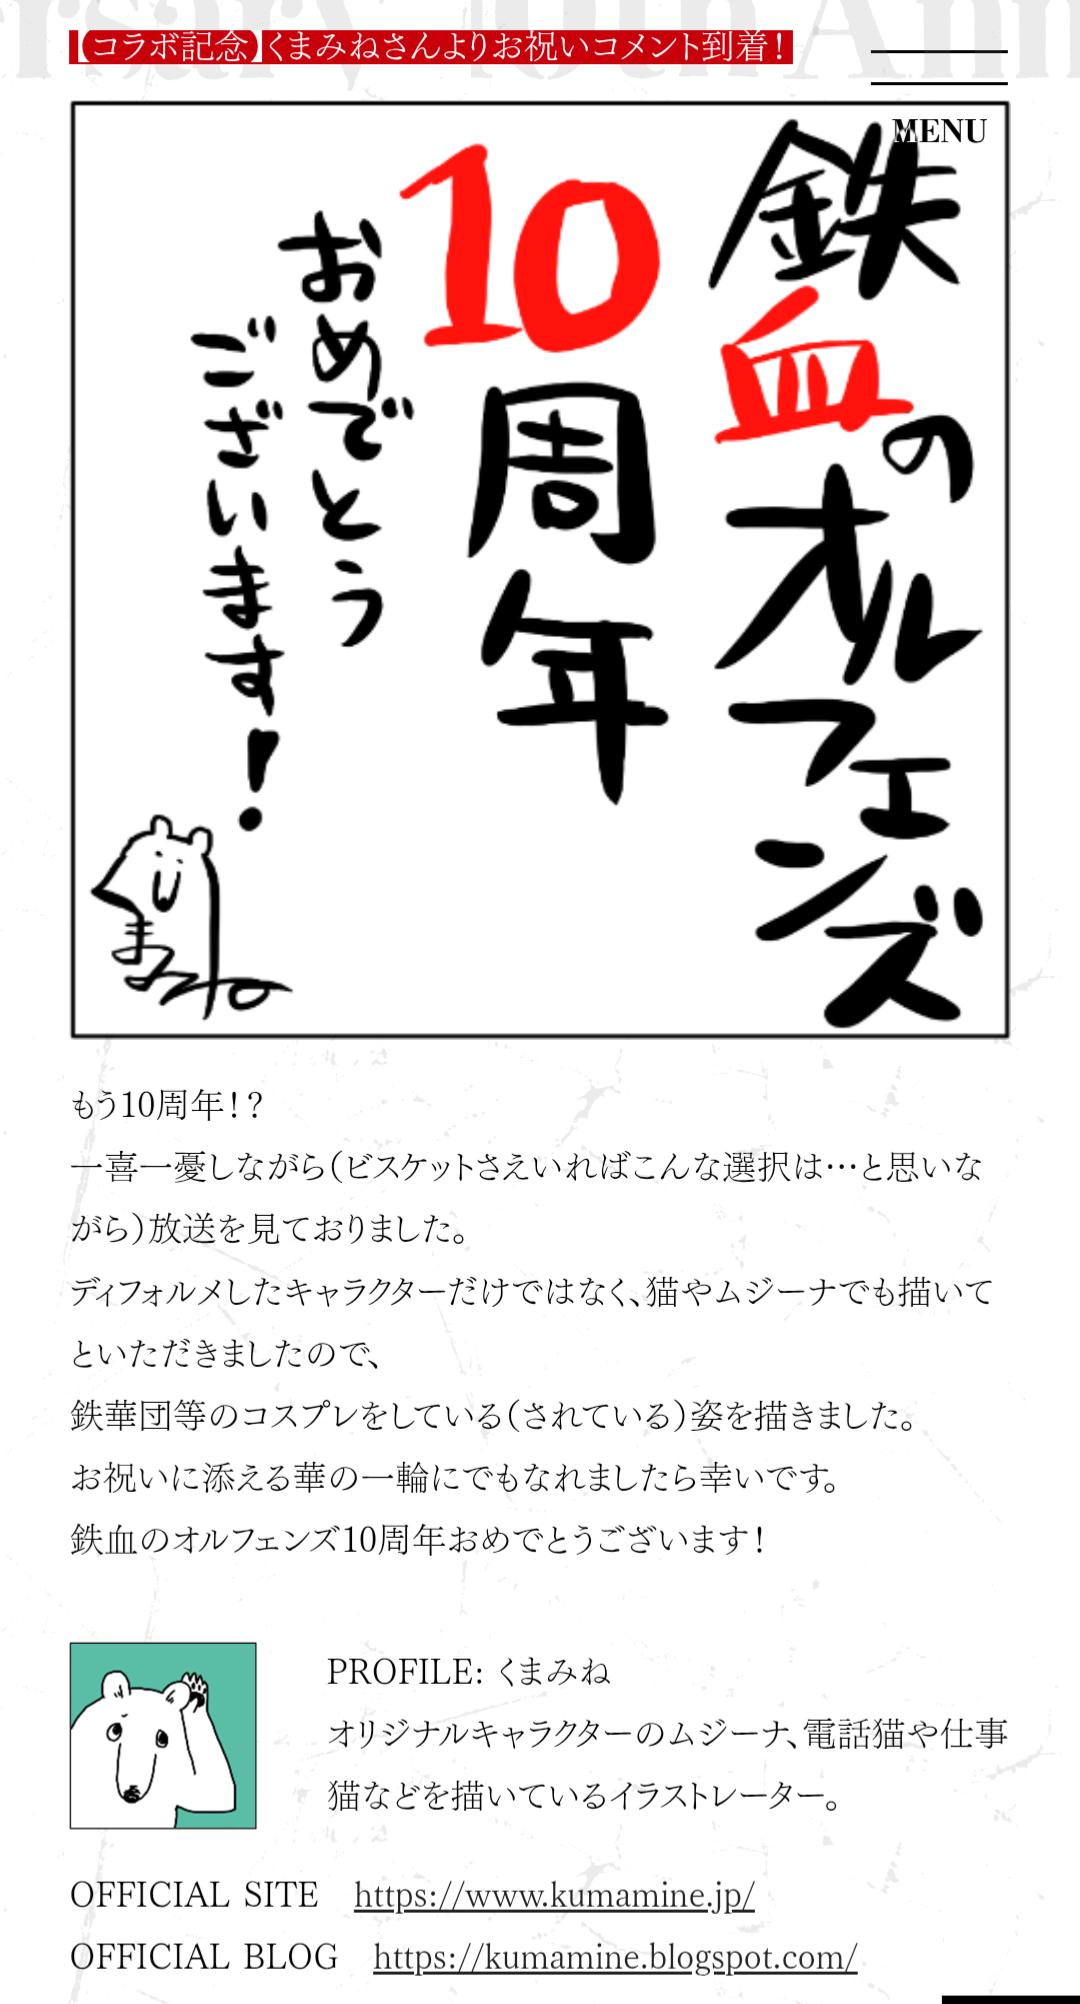 ersary 10th Ann
【コラボ記念】くまみねさんよりお祝いコメント到着！
MENU
鉄血のオルフェンズ
10周年
おめでとう
ございます！
くまみね
もう10周年！？
一喜一憂しながら（ビスケットさえいればこんな選択は…と思いな
がら）放送を見ておりました。
ディフォルメしたキャラクターだけではなく、猫やムジーナでも描いて
といただきましたので、
鉄華団等のコスプレをしている（されている）姿を描きました。
お祝いに添える華の一輪にでもなれましたら幸いです。
鉄血のオルフェンズ10周年おめでとうございます！
PROFILE: くまみね
オリジナルキャラクターのムジーナ、電話猫や仕事
猫などを描いているイラストレーター。
OFFICIAL SITE https://www.kumamine.jp/
OFFICIAL BLOG https://kumamine.blogspot.com/